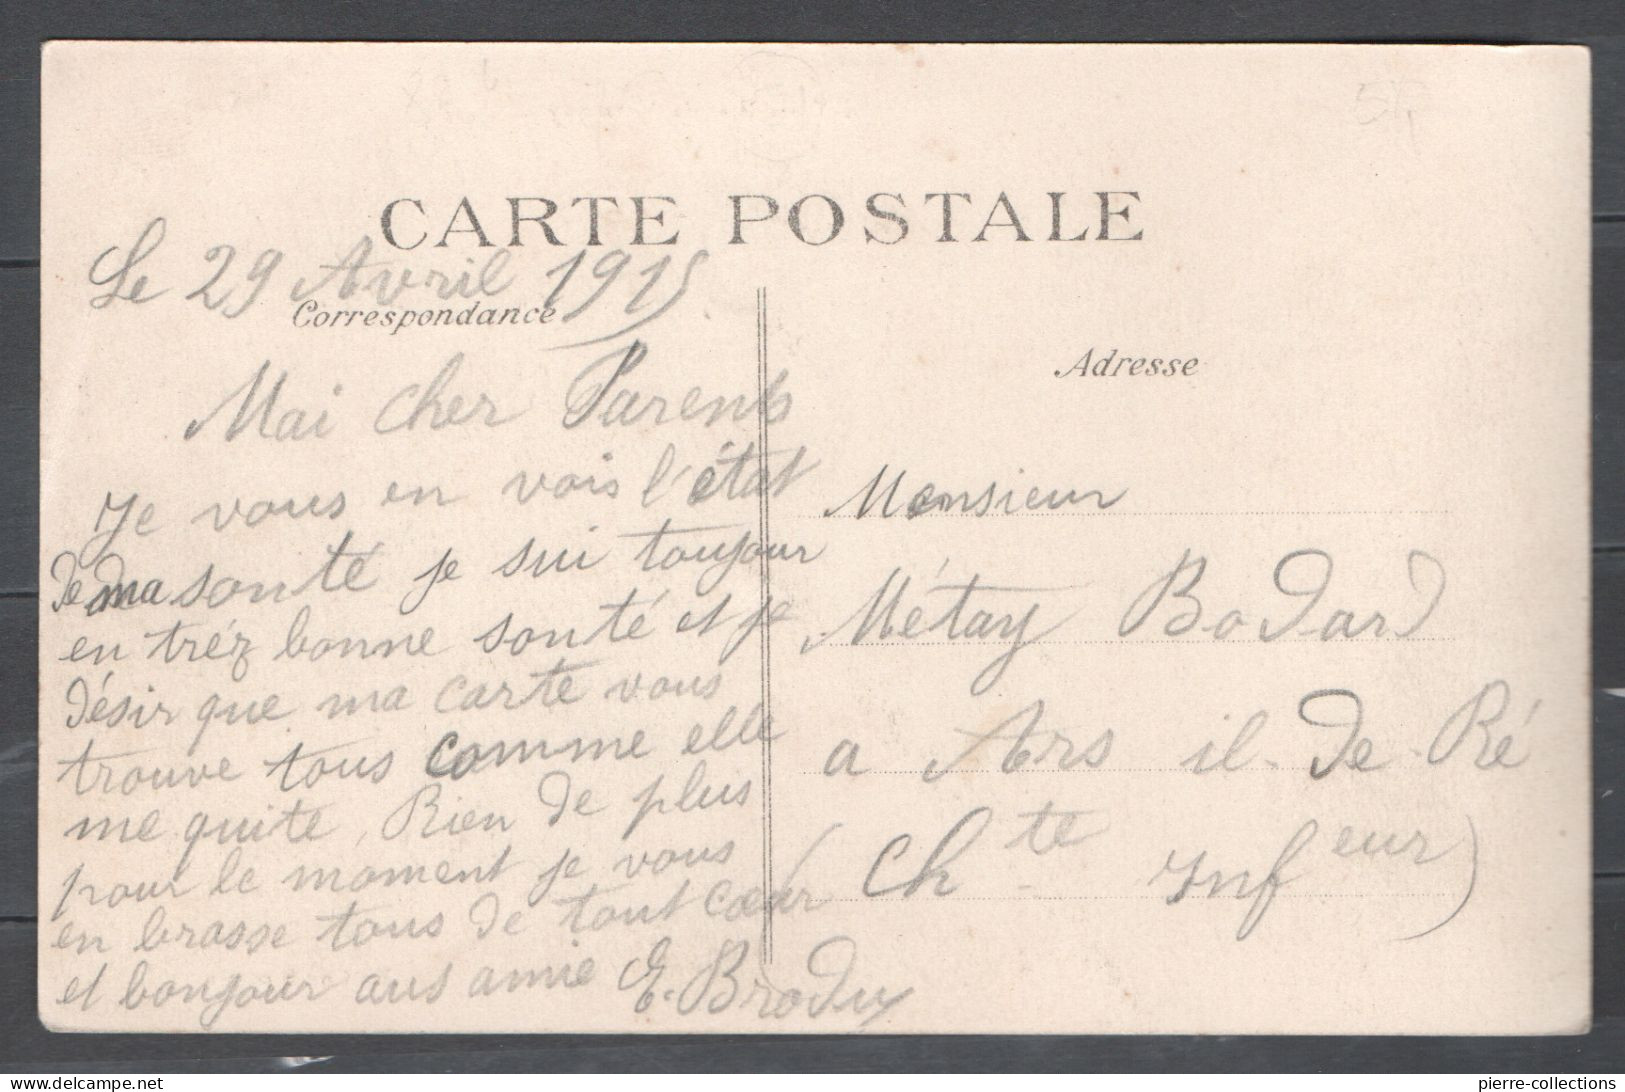 CARTE POSTALE
Le 29 Avril 1915
Correspondance
Mai cher Parents
Je vous en vois l'état
de ma sonté je sui toujour
en tréz bonne sonté et je
désir que ma carte vous
trouve tous comme elle
me quite, Rien de plus
pour le moment je vous
en brasse tous de tout cœur
et bonjour aus amie E. Brodux
Adresse
Monsieur
Métay Bodard
a Ars il. de. Ré
(Ch te Inf eur)
pierre-collections